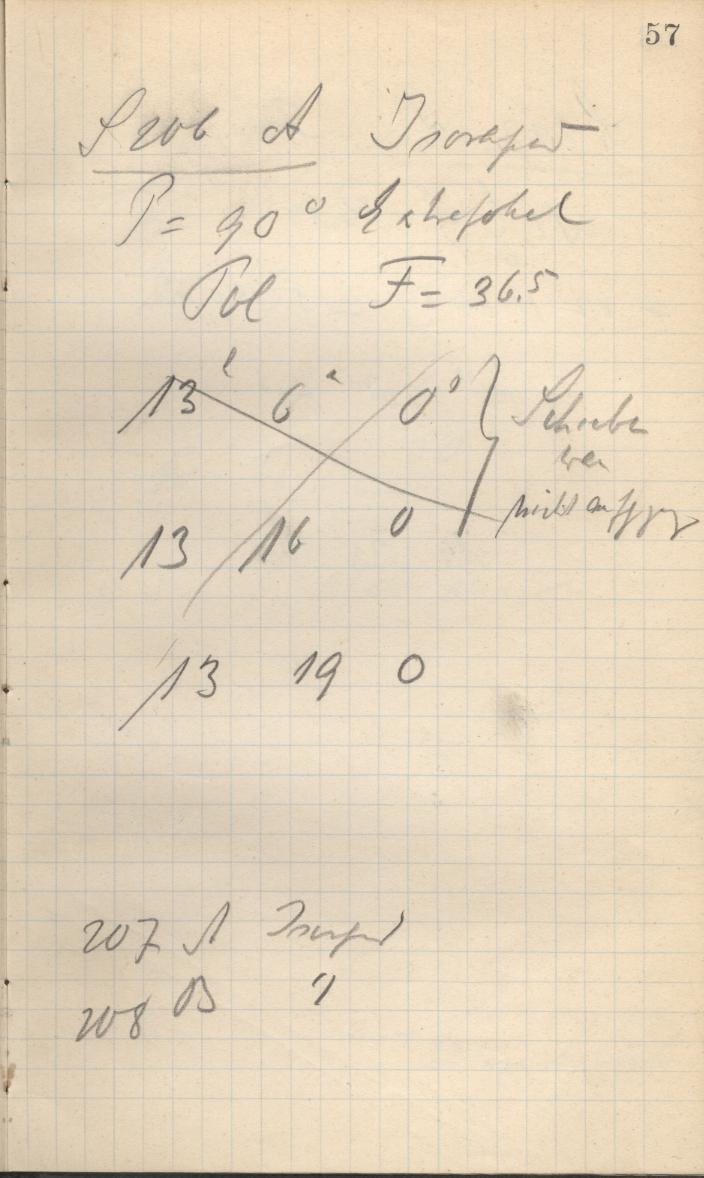 57
S 206 A Isorapid
P = 90° Extrafokal
Pol F = 36.5
13 6 0 Schieber
war
13 16 0 nicht
13 19 0
207 A Isorapid
208 B "